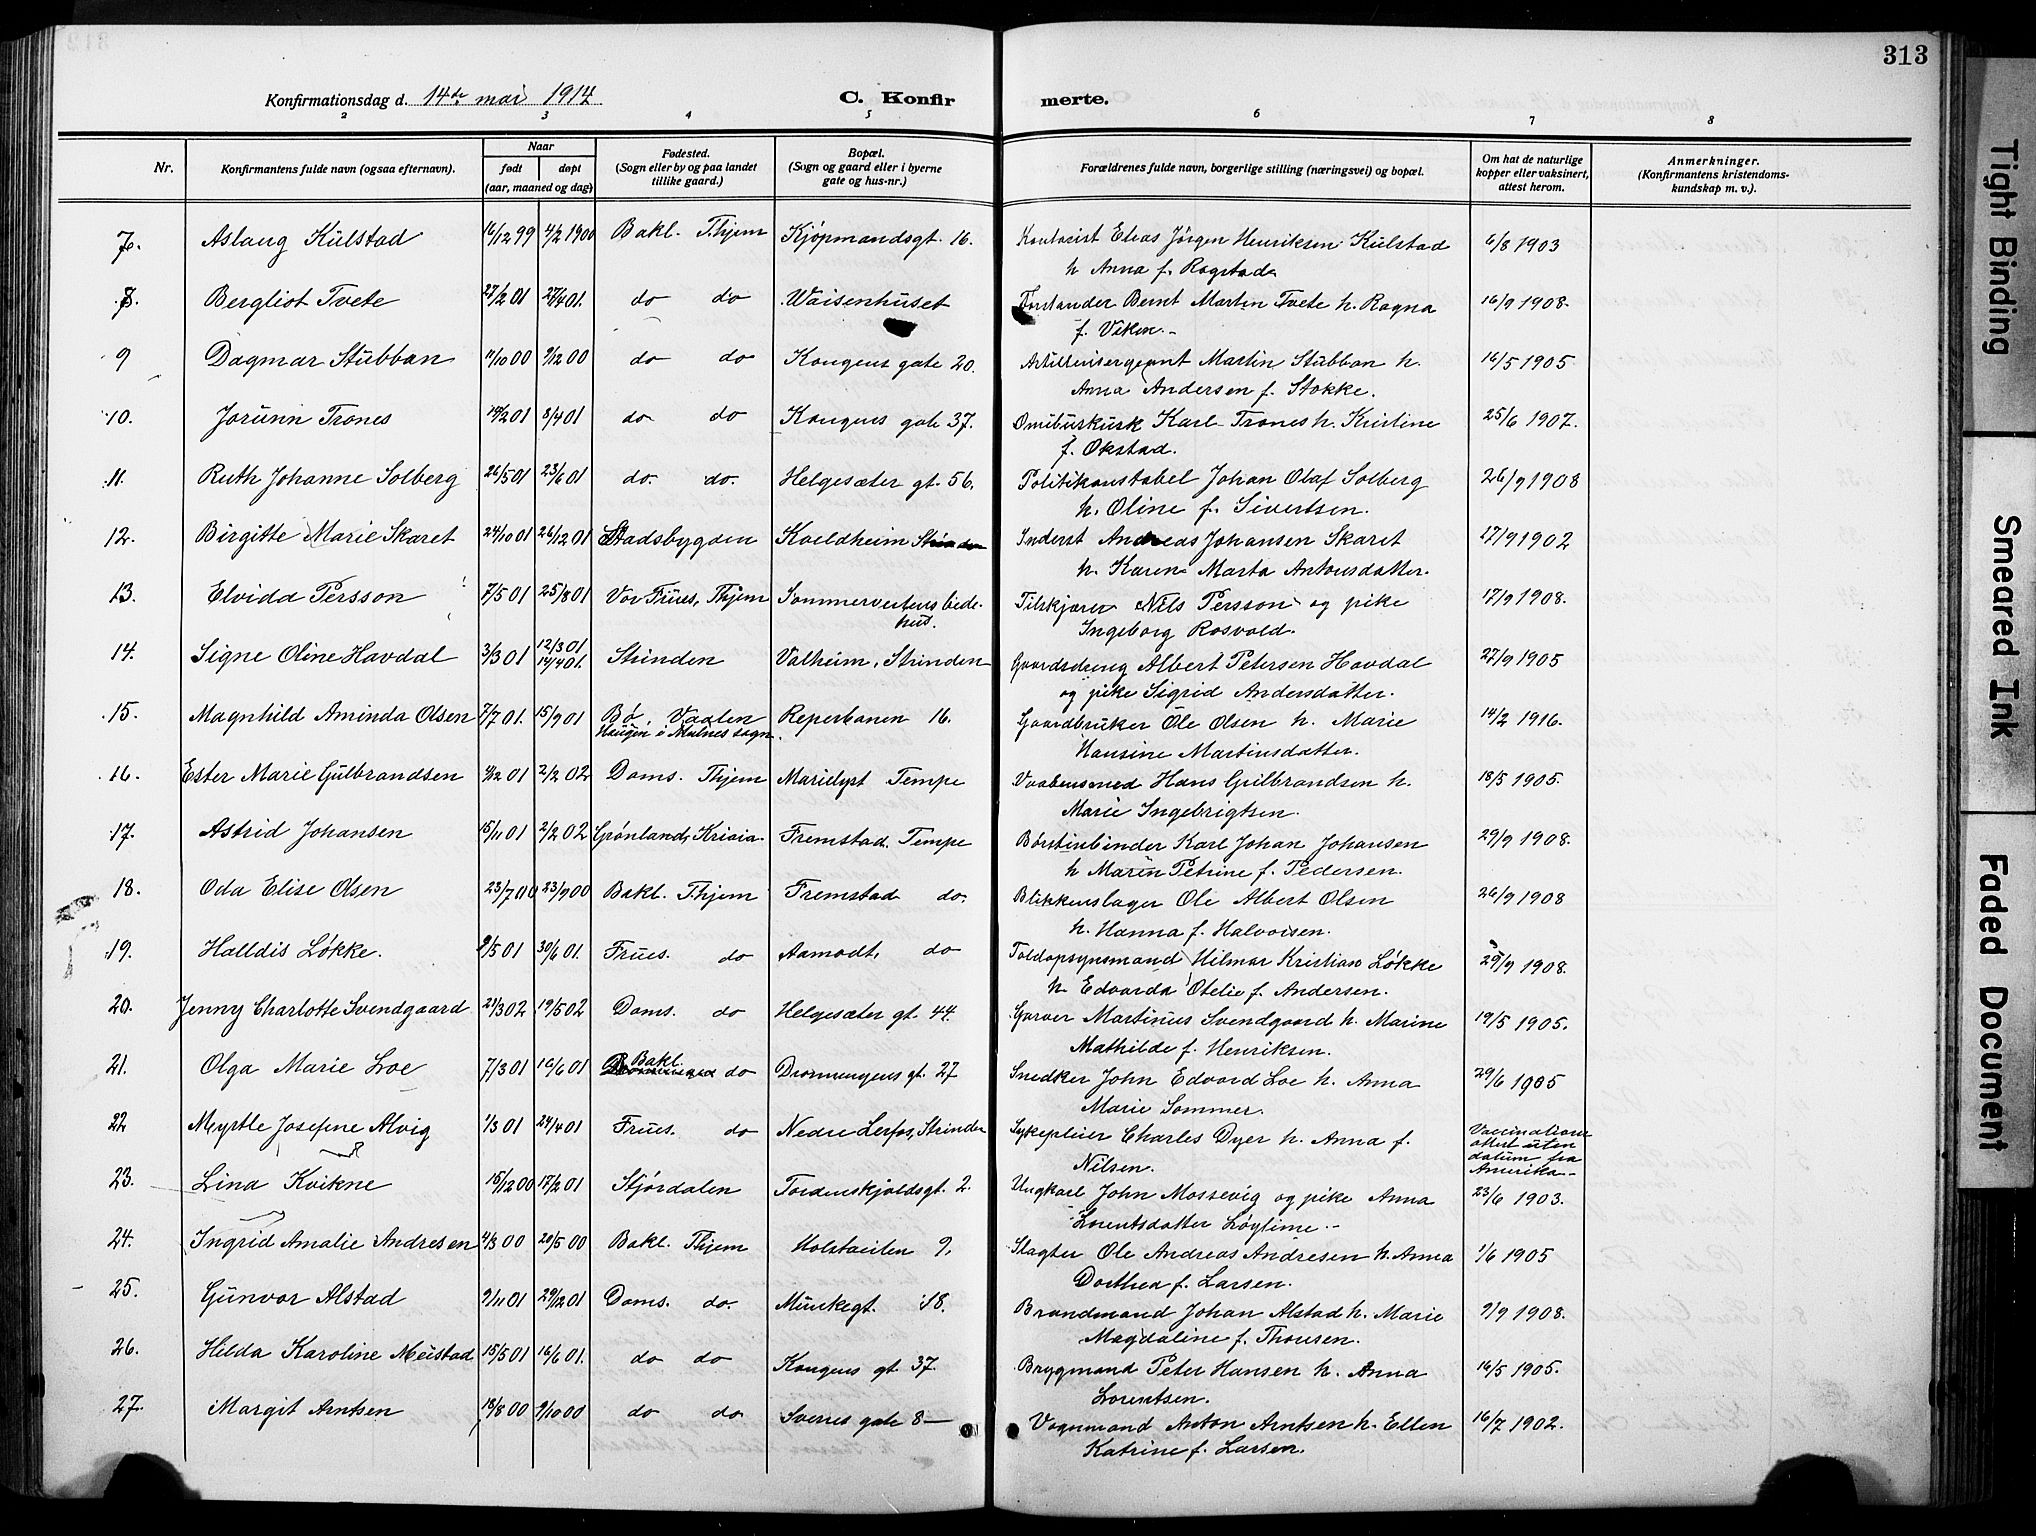 313
Konfirmationsdag d. 14de mai 1914
C. Konfirmerte.
2 3 4 5 6 7 8
Nr. Konfirmantens fulde navn (ogsaa efternavn). Naar født døpt (aar, maaned og dag) Fødested. (Sogn eller by og paa landet tillike gaard.) Bopæl. (Sogn og gaard eller i byerne gate og hus-nr.) Forældrenes fulde navn, borgerlige stilling (næringsvei) og bopæl. Om hat de naturlige kopper eller vaksinert, attest herom. Anmerkninger. (Konfirmantens kristendomskundskap m. v.).
7. Aslaug Kulstad 16/12 99 4/2 1900 Bakl. Thjem Kjøpmandsgt. 16. Kontorist Elias Jørgen Henriksen Kulstad 6/8 1903
h. Anna f. Rogstad
8. Bergliot Tvete 27/2 01 27/4 01. do do Waisenhuset Forstander Bernt Martin Tvete h. Ragna 16/9 1908.
f. Viken.
9 Dagmar Stubban 11/10 00 9/12 00 do do Kongens gate 20. Artillerisergeant Martin Stubban h. 16/5 1905
Anna Andersen f. Stokke.
10. Jorunn Trones 14/2 01 8/4 01 do do Kongens gate 37. Omibuskusk Karl Trones h. Kristine 25/6 1907.
f. Okstad.
11. Ruth Johanne Solberg 26/5 01 23/6 01 do. do. Helgesæter gt. 56. Politikonstabel Johan Olaf Solberg 26/9 1908
h. Oline f. Sivertsen.
12. Birgitte Marie Skaret 24/10 01 26/12 01 Stadsbygden Kveldheim Strinden Inderst Andreas Johansen Skaret 17/9 1902
h. Karen Marta Antonsdatter.
13. Elvida Persson 7/5 01 25/8 01 Vor Frues, Thjem Sommervertens bedehus. Tilskjærer Nils Persson og pike 17/9 1908.
Ingeborg Rosvold.
14. Signe Oline Havdal 3/3 01 12/3 01 14/4 01. Strinden Valheim, Strinden Gaardsdreng Albert Petersen Havdal 27/9 1905
og pike Sigrid Andersdatter.
15. Magnhild Aminda Olsen 7/7 01. 15/9 01 Bø, Vaalen Haugen i Malnes sogn Reperbanen 16. Gaardbruker Ole Olsen h. Marie 14/2 1916.
Hansine Martinusdatter.
16. Ester Marie Gulbrandsen 4/12 01 2/2 02 Doms. Thjem Marielyst Tempe Vaabensmed Hans Gulbrandsen h. 18/5 1905.
Marie Ingebrigtsen.
17. Astrid Johansen 15/11 01 2/2 02 Grønland, Kriaia. Fremstad. Tempe Børstinbinder Karl Johan Johansen 29/9 1908.
h Maren Petrine f. Pedersen.
18. Oda Elise Olsen 23/7 00 23/9 00 Bakl. Thjem Fremstad do. Blikkenslager Ole Albert Olsen 26/9 1908
h. Hanna f. Halvorsen.
19. Halldis Løkke. 9/5 01 30/6 01. Frues. do Aamodt, do Toldopsynsmand Hilmar Kristian Løkke 29/9 1908.
h. Edvarda Otelie f. Andersen.
20. Jenny Charlotte Svendgaard 21/3 02 19/5 02 Doms. do Helgesæter gt. 44. Garver Martinus Svendgaard h. Marine 19/5 1905.
Mathilde f. Henriksen.
21. Olga Marie Loe 7/3 01 16/6 01 Bakl. do Dronningens gt. 27 Snedker John Edvard Loe h. Anna 29/6 1905
Marie Sommer.
22 Myrtle Josefine Alvig 1/3 01 24/4 01 Frues. do Nedre Lerfos, Strinden Sykepleier Charles Dyer h. Anna f. Vaccinations attest uten datum fra Amerika
Nilsen.
23. Lina Kvikne 15/12 00 17/2 01 Stjørdalen Tordenskjoldsgt. 2. Ungkarl John Mossevig og pike Anna 23/6 1903.
Lorentsdatter Løytime
24. Ingrid Amalie Andresen 4/3 00 20/5 00 Bakl. Thjem Holstveiten 9. Slagter Ole Andreas Andresen h. Anna 1/6 1905
Dorthea f. Larsen.
25. Gunvor Alstad 9/11 01 29/12 01 Doms. do. Munkegt. 18. Brandmand Johan Alstad h. Marie 9/9 1908.
Magdaline f. Thonsen.
26. Hilda Karoline Meistad 15/5 01 16/6 01. do do Kongens gt. 37 Brygmand Peter Hansen h. Anna 16/5 1905.
Lorentsen.
27. Margit Arntsen 18/8 00 9/10 00 do do Sverres gate 8 Vognmand Anton Arntsen h. Ellen 16/7 1902.
Katrine f. Larsen.
Tight Binding
Smeared Ink
Faded Document